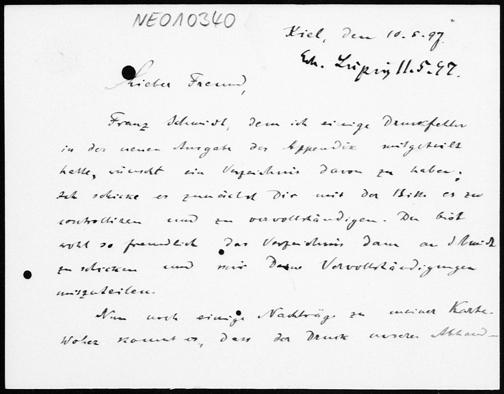 NEO10340
Kiel, den 10.5.97.
Erh. Leipzig 11.5.97.
Lieber Freund,
Franz Schmidt, dem ich einige Druckfehler
in der neuen Ausgabe des Appendix mitgeteilt
hatte, wünscht ein Verzeichnis davon zu haben.
Ich schicke es zunächst Dir mit der Bitte es zu
controlliren und zu vervollständigen. Du bist
wohl so freundlich das Verzeichnis dann an Schmidt
zu schicken und mir Deine Vervollständigungen
mitzuteilen.
Nun noch einige Nachträge zu meiner Karte.
Woher kommt es, dass der Druck unserer Abhand-